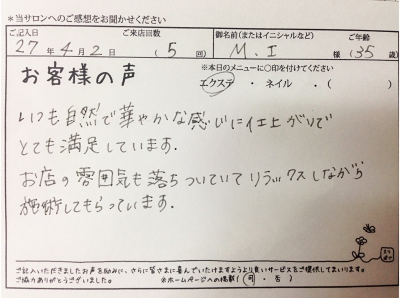 *当サロンへのご感想をお聞かせください
ご記入日 ご来店回数 御名前(またはイニシャルなど) ご年齢
27年4月2日 (5回) M.I 様(35歳)
お客様の声
※本日のメニューに〇印を付けてください
エクステ ・ ネイル ・( )
いつも自然で華やかな感じに仕上がりで
とても満足しています.
お店の雰囲気も落ちついていてリラックスしながら
施術してもらっています.
ご記入いただきましたお声を励みに、さらに皆さまに喜んでいただけますようより良いサービスをご提供してまいります。
ご協力ありがとうございました。 ※ホームページへの掲載( 可 ・ 否 )